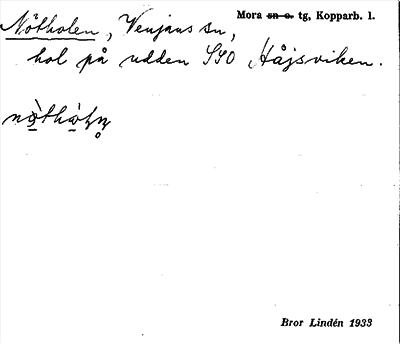 Nötholen, Venjans sn, Mora sn o. tg, Kopparb. l.
hol på udden SSO Håjsviken.
Bror Lindén 1933